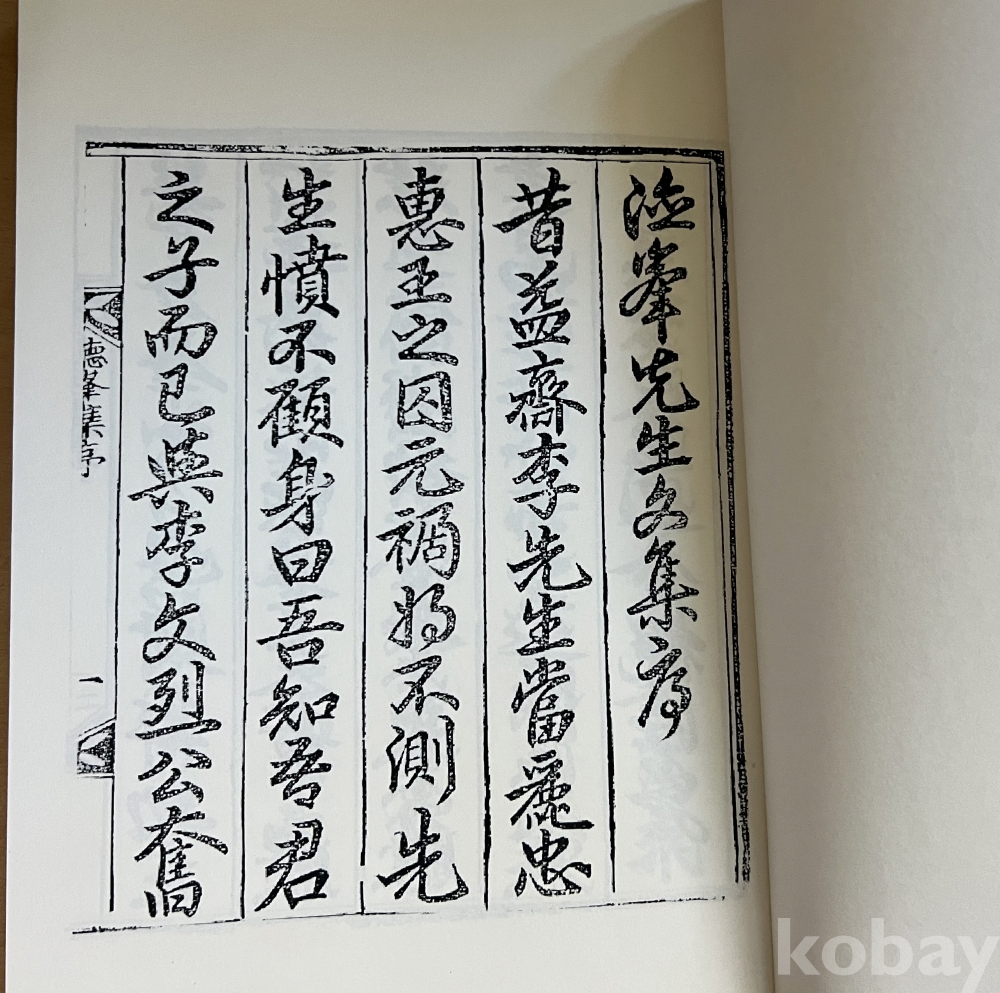 德峯先生文集序
昔益齋李先生當麗忠
惠王之囚元禍將不測先
生憤不顧身曰吾知吾君
之子而已與李文烈公奮
德峯集序
一
kobay